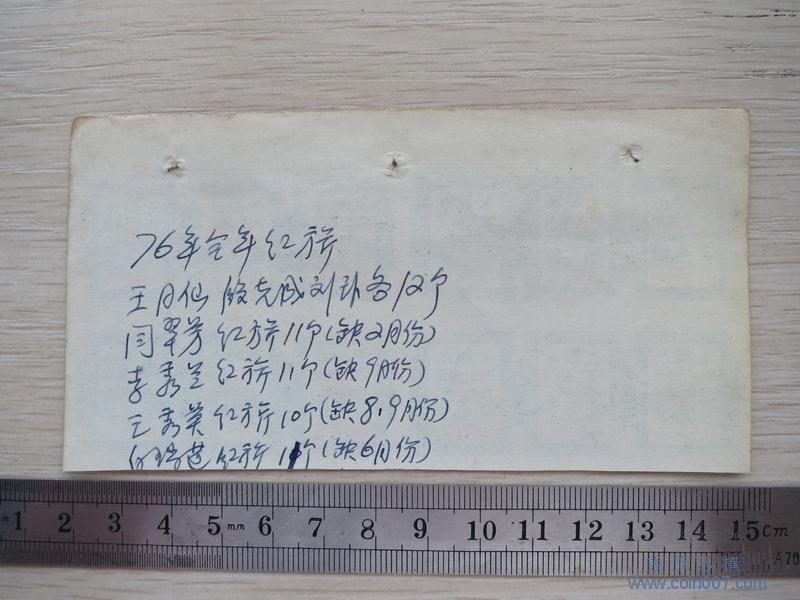 76年全年红旗
王月仙 段克成 刘卦各12个
闫翠芳 红旗11个(缺2月份)
李秀兰 红旗11个(缺9月份)
王秀英 红旗10个(缺8.9月份)
红旗11个(缺6月份)
1 2 3 4 5 mm 6 7 8 9 10 11 12 13 14 15 cm
www.coin007.com